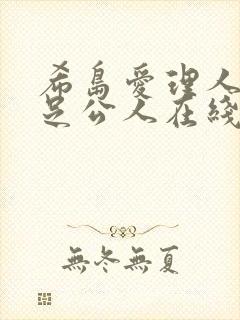 希島愛理人
足公人在綫
無冬無夏